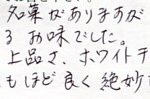 名菓がありますが
るお味でした。
上品さ、ホワイトチ
もほど良く絶妙